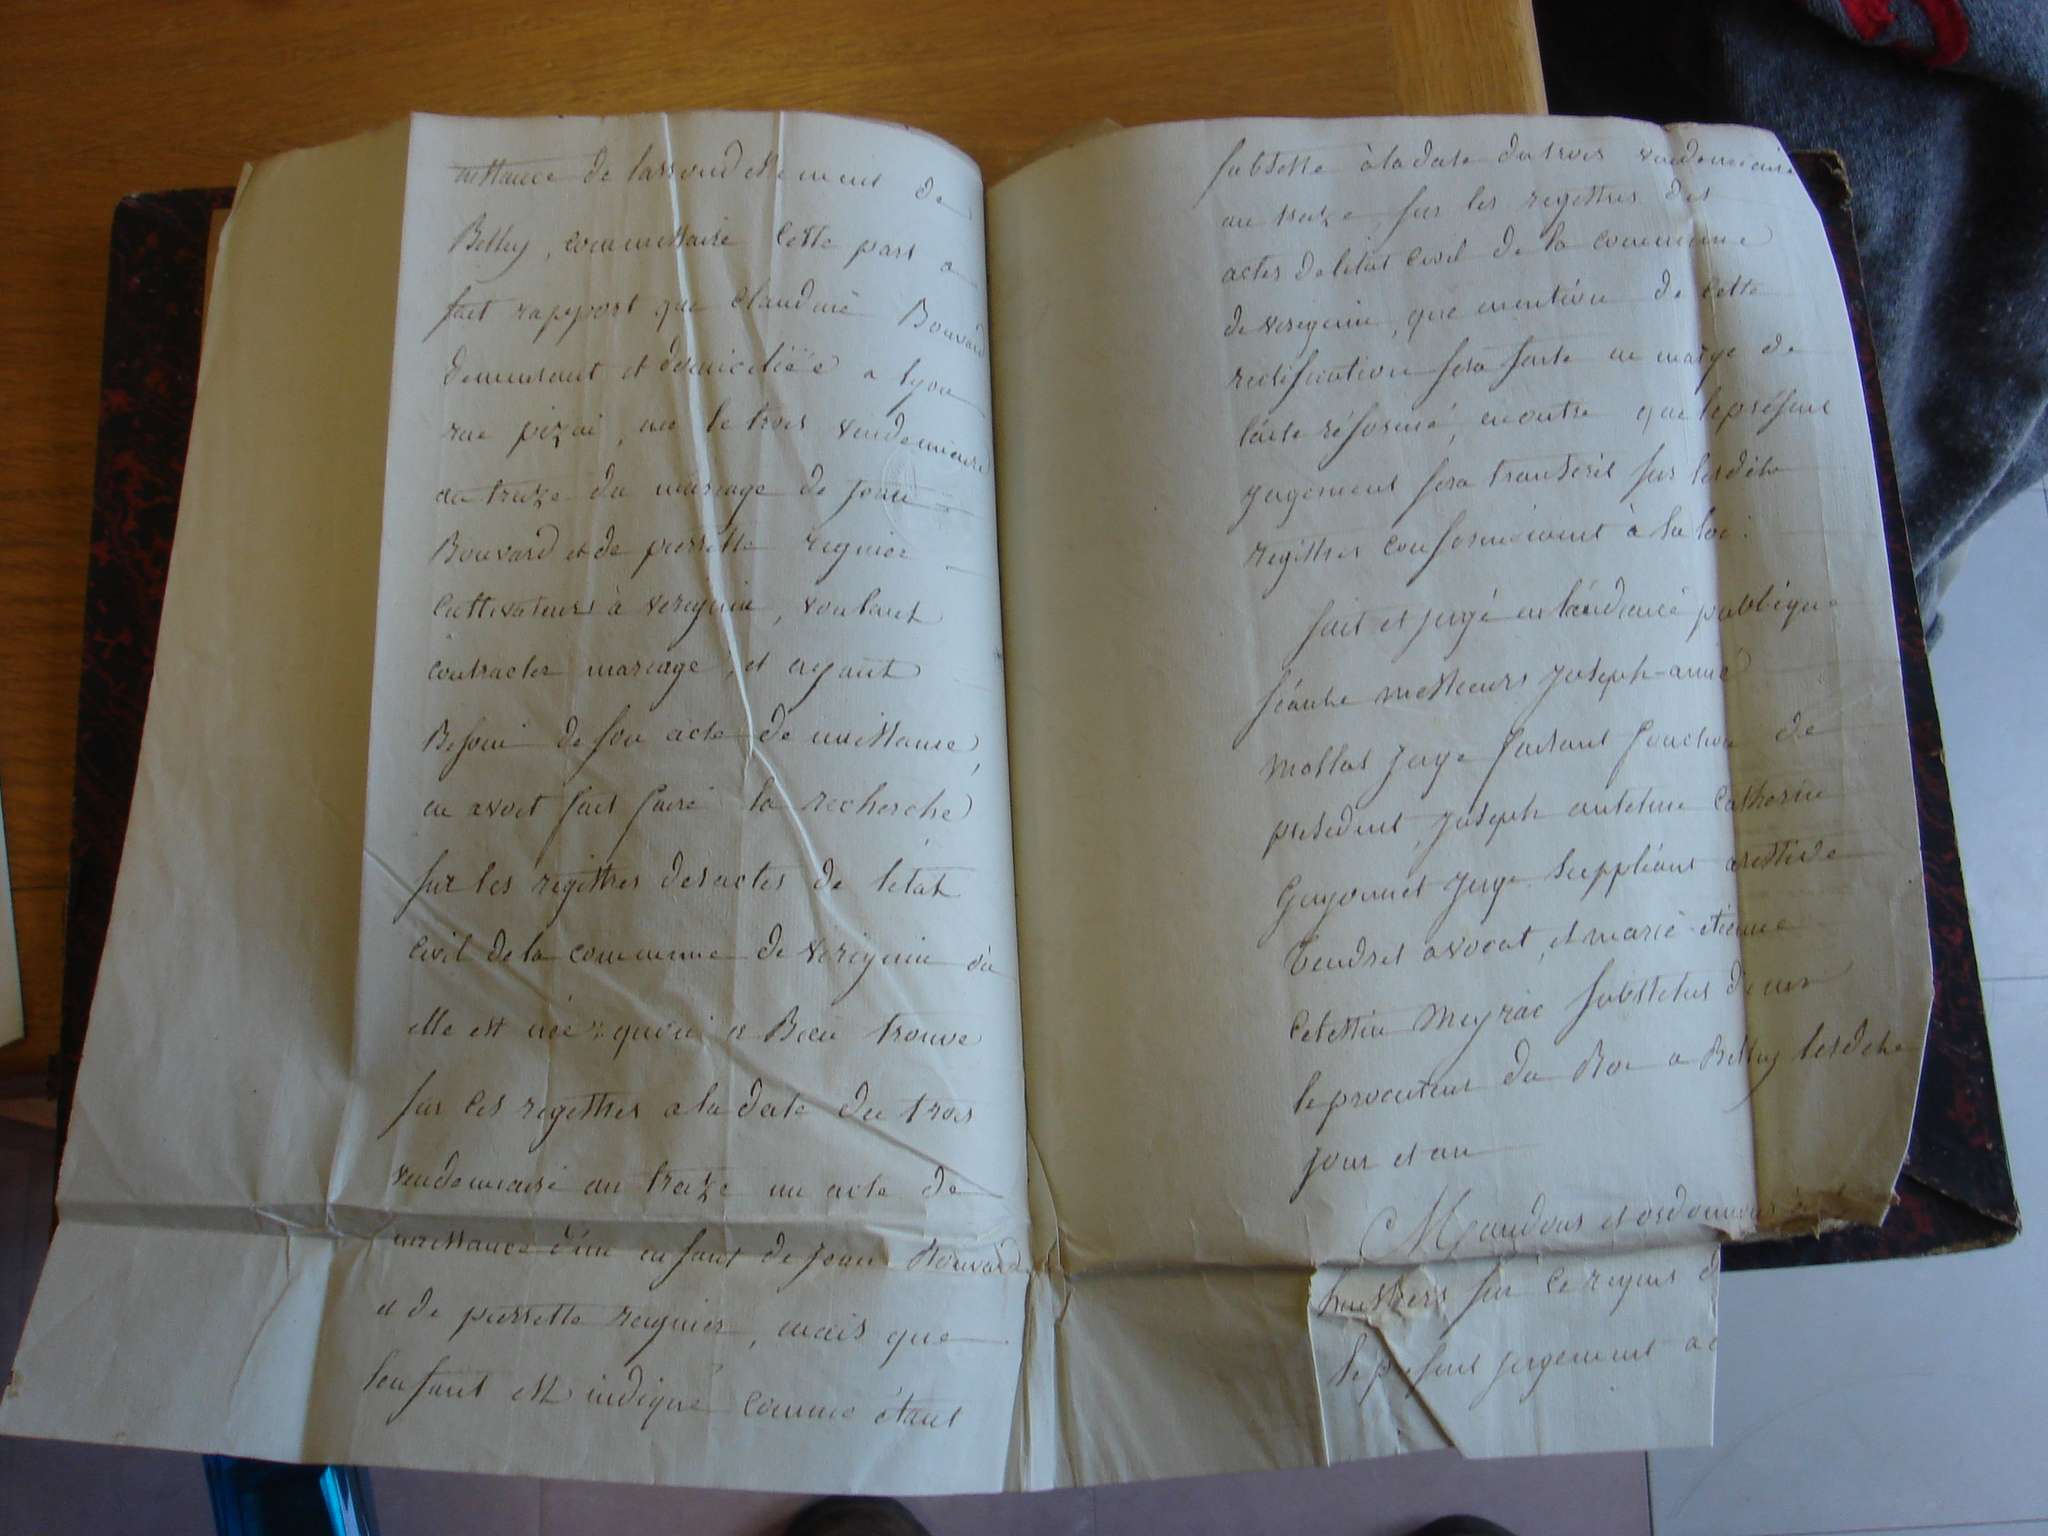 instance de larrondissement de
Belley, commissaire Cette part a
fait rapport que Claudine Bouvard
demeurant et domiciliée a lyon
rue pizai, née le trois vendemiaire
an treize du mariage de Jean
Bouvard et de pierrette regnier
Cultivateurs à virignin, voulant
contracter mariage, et ayant
Besoin de son acte de naissance,
en avoit fait faire la recherche
sur les registres des actes de letat
Civil de la commune de virignin où
elle est née; quoi a Bien trouvé
sur ces registres a la date du trois
vendemiaire an treize un acte de
naissance d'un enfant de Jean Bouvard
et de pierrette regnier, mais que
lenfant est indiqué comme étant
subsiste à la date du trois vendemiaire
an treize, sur les registres des
actes de letat Civil de la commune
de virignin, que mention de cette
rectification sera faite en marge de
lacte réformé, en outre que le présent
jugement sera transcrit sur lesdits
registres conformément à la loi.
fait et jugé en laudiance publique
séante messieurs joseph-anne
mollet juge faisant fonction de
president, joseph antelme Catherin
Guyonnet juge suppléant aristide
Tendret avocat, et marie étienne
Celestin meyrac substitut de mr
le procureur du Roi a Belley lesdits
jour et an
Mandons et ordonnons à
huissiers sur ce requis d
le présent jugement a e